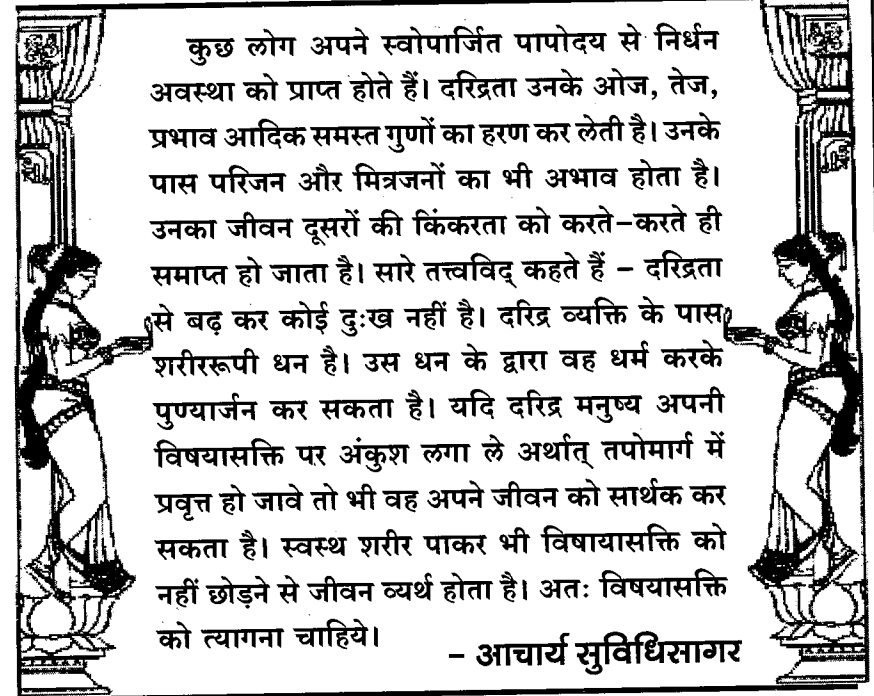 कुछ लोग अपने स्वोपार्जित पापोदय से निर्धन
अवस्था को प्राप्त होते हैं। दरिद्रता उनके ओज, तेज,
प्रभाव आदिक समस्त गुणों का हरण कर लेती है। उनके
पास परिजन और मित्रजनों का भी अभाव होता है।
उनका जीवन दूसरों की किंकरता को करते-करते ही
समाप्त हो जाता है। सारे तत्त्वविद् कहते हैं - दरिद्रता
से बढ़ कर कोई दुःख नहीं है। दरिद्र व्यक्ति के पास
शरीररूपी धन है। उस धन के द्वारा वह धर्म करके
पुण्यार्जन कर सकता है। यदि दरिद्र मनुष्य अपनी
विषयासक्ति पर अंकुश लगा ले अर्थात् तपोमार्ग में
प्रवृत्त हो जावे तो भी वह अपने जीवन को सार्थक कर
सकता है। स्वस्थ शरीर पाकर भी विषायासक्ति को
नहीं छोड़ने से जीवन व्यर्थ होता है। अतः विषयासक्ति
को त्यागना चाहिये।
- आचार्य सुविधिसागर